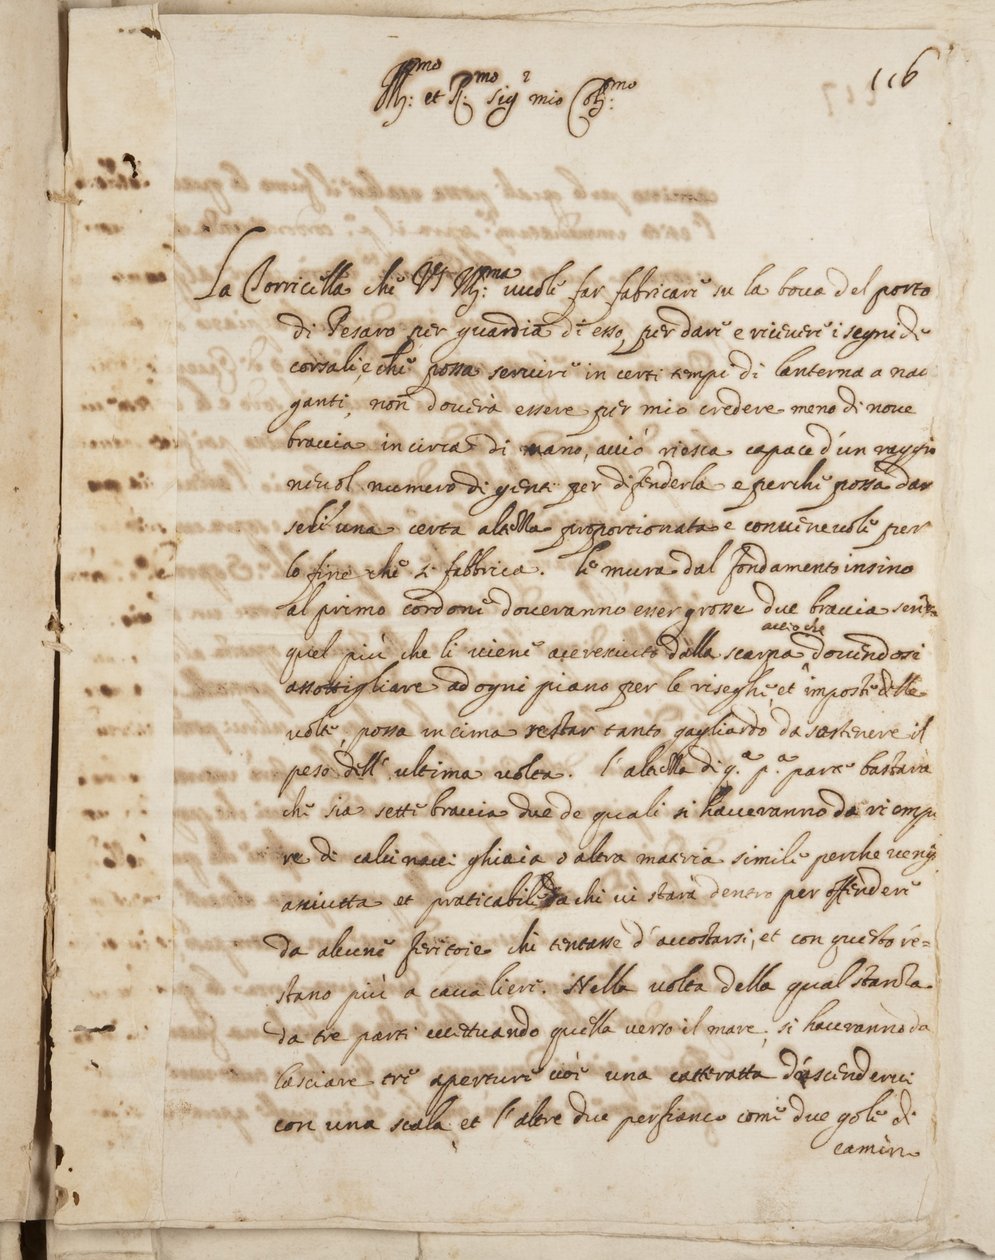 116
Ill:mo et R.mo Sig.r mio Coll:mo
La Torricella che V.S. Ill:ma vuole far fabricare su la bocca del porto
di Pesaro per guardia di esso, per dare e ricevere i segni di
corsali, e che possa servire in certi tempi di lanterna a navi
ganti, non doverà essere per mio credere meno di nove
braccia in circa di vano, acciò riesca capace d'un raggio
nevol numero di genti per difenderla e perche possa dar
seli una certa altezza proporzionata e convenevole per
lo fine che si fabbrica. le mura dal fondamento insino
al primo cordone doveranno esser grosse due braccia senza
quel più che li viene accresciuto dalla scarpa acciò che dovendosi
assottigliare ad ogni piano per le riseghe, et imposte delle
volte, possa in cima restar tanto gagliardo da sostenere il
peso dell'ultima volta. l'altezza di q.a p.a parte bastarà
che sia sette braccia due de quali si haveranno da riempi
re di calcinacci ghiaia o altra materia simile perche venga
asciutta et praticabile a chi vi starà dentro per offendere
da alcune feritoie chi tentasse d'accostarsi, et con questo re=
stano più a cavalieri. Nella volta della qual stanza
da tre parti eccettuando quella verso il mare, si haveranno da
lasciare tre aperture cioè una catteratta d'ascenderci
con una scala et l'altre due per fianco come due gole di
camin